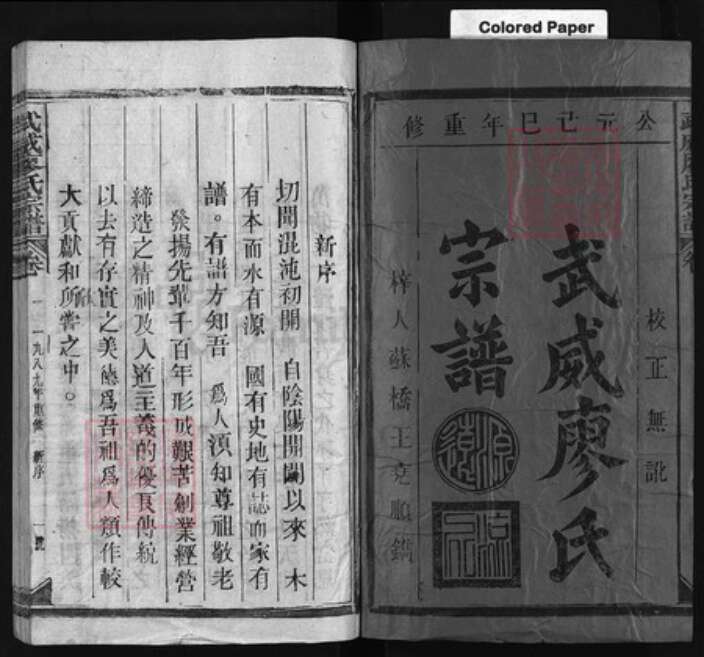 Colored Paper
公元己巳年重修
校正無訛
武威廖氏
宗譜
源遠
梓人蘇橋王克順鐫
新序
切聞混沌初開 自陰陽開闢以來 木
有本而水有源 國有史地有誌而家有
譜。有譜方知吾 爲人須知尊祖敬老
發揚先輩千百年形成艱苦創業經營
締造之精神及人道主義的優良傳統
以去有存實之美德爲吾祖爲人類作較
大貢獻和所嘗之中。
武威廖氏宗譜
卷
一九八九年重修 新序 一號